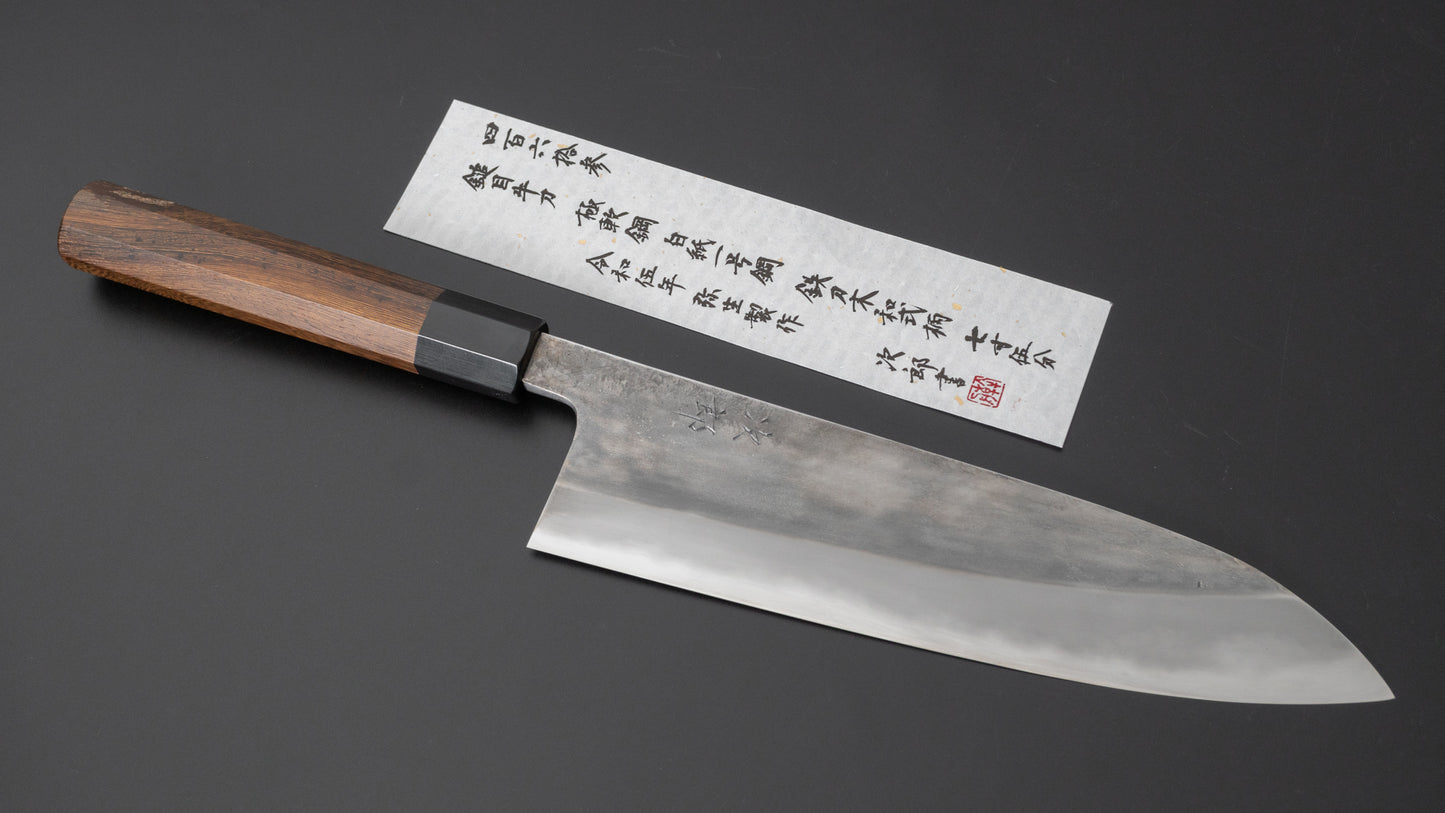 四百六拾参
鎚目牛刀 極軟鋼 白紙一号鋼 鉄刀木和式柄 七寸伍分
令和伍年 弥生製作 次郎書
次郎